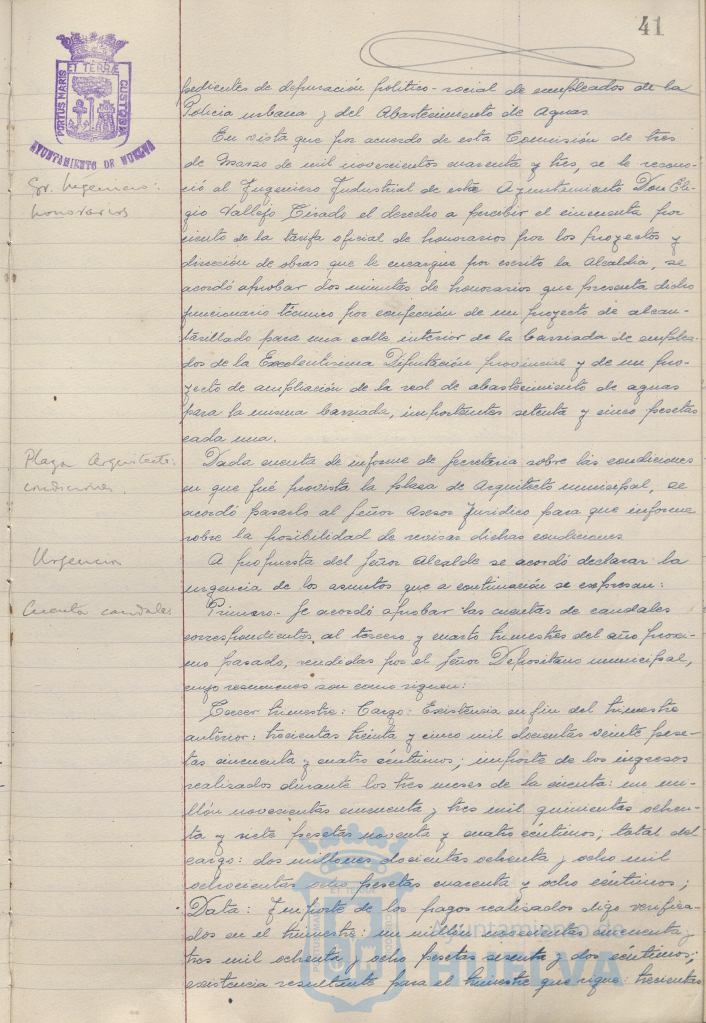 41
PORTUS MARIS ET TERRÆ CUSTODIA
AYUNTAMIENTO DE HUELVA
pedientes de depuración político-social de empleados de la
Policía urbana y del Abastecimiento de Aguas
En vista que por acuerdo de esta Comisión de tres
de Marzo de mil novecientos cuarenta y tres, se le recono-
Sr. Ingeniero:
ció al Ingeniero Industrial de este Ayuntamiento Don Eli-
honorarios
gio Vallejo Tirado el derecho a percibir el cincuenta por
ciento de la tarifa oficial de honorarios por los proyectos y
dirección de obras que le encargue por escrito la Alcaldía, se
acordó aprobar dos minutas de honorarios que presenta dicho
funcionario técnico por confección de un proyecto de alcan-
tarillado para una calle interior de la barriada de emplea-
dos de la Excelentísima Diputación provincial y de un pro-
yecto de ampliación de la red de abastecimiento de aguas
para la misma barriada, importantes setenta y cinco pesetas
cada una.
Plaza Arquitecto:
Dada cuenta de informe de Secretaría sobre las condiciones
condiciones.
en que fué provista la plaza de Arquitecto municipal, se
acordó pasarlo al Señor Asesor Jurídico para que informe
sobre la posibilidad de revisar dichas condiciones
Urgencia
A propuesta del Señor Alcalde se acordó declarar la
urgencia de los asuntos que a continuación se expresan:
Cuentas caudales
Primero.- Se acordó aprobar las cuentas de caudales
correspondientes al tercero y cuarto trimestres del año próxi-
mo pasado, rendidas por el Señor Depositario municipal,
cuyos resúmenes son como siguen:
Tercer trimestre: Cargo: Existencia en fin del trimestre
anterior: trescientas treinta y cinco mil doscientas veinte pese-
tas cincuenta y cuatro céntimos; importe de los ingresos
realizados durante los tres meses de la cuenta: un mi-
llón novecientas cincuenta y tres mil quinientas ochen-
ta y siete pesetas noventa y cuatro céntimos; total del
cargo: dos millones doscientas ochenta y ocho mil
ochocientas ocho pesetas cuarenta y ocho céntimos;
Data: Importe de los pagos realizados digo verifica-
dos en el trimestre: un millón novecientas cincuenta y
tres mil ochenta y ocho pesetas sesenta y dos céntimos;
existencia resultante para el trimestre que sigue: trescientas
Ayuntamiento de
HUELVA